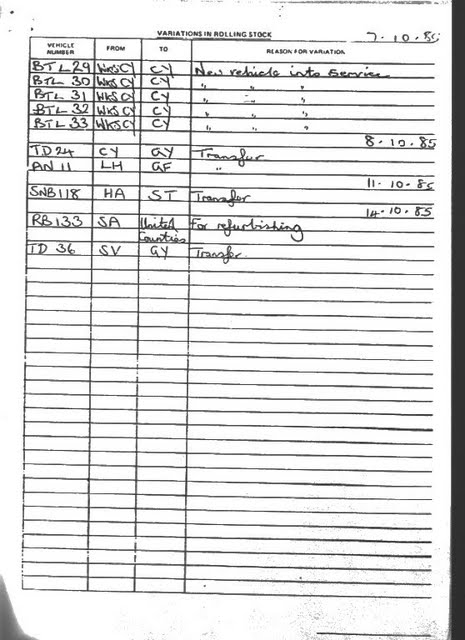 VARIATIONS IN ROLLING STOCK 7.10.85
VEHICLE NUMBER FROM TO REASON FOR VARIATION
BTL29 WKSCY CY New vehicle into service
BTL 30 WKSCY CY " " "
BTL 31 WKSCY CY " " "
BTL 32 WKSCY CY " " "
BTL 33 WKSCY CY " " "
8.10.85
TD24 CY GY Transfer
AN 11 LH GF "
11.10.85
SNB118 HA ST Transfer
14.10.85
RB133 SA United Counties For refurbishing
TD 36 SV GY Transfer.